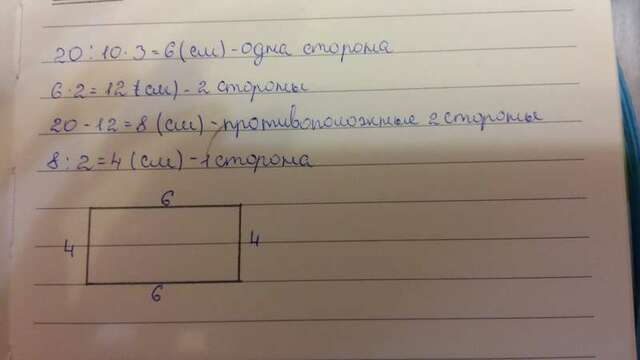 20:10·3=6(см)-одна сторона
6·2=12(см)-2 стороны
20-12=8(см)-противоположные 2 стороны
8:2=4(см)-1 сторона
4
6
6
4